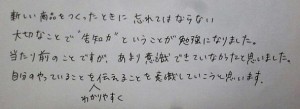 新しい商品をつくったときに 忘れてはならない
大切なことで“告知力”ということが勉強になりました。
当たり前のことですが、あまり意識できていなかったと思いました。
自分のやっていることを伝えることを意識していこうと思います。
わかりやすく